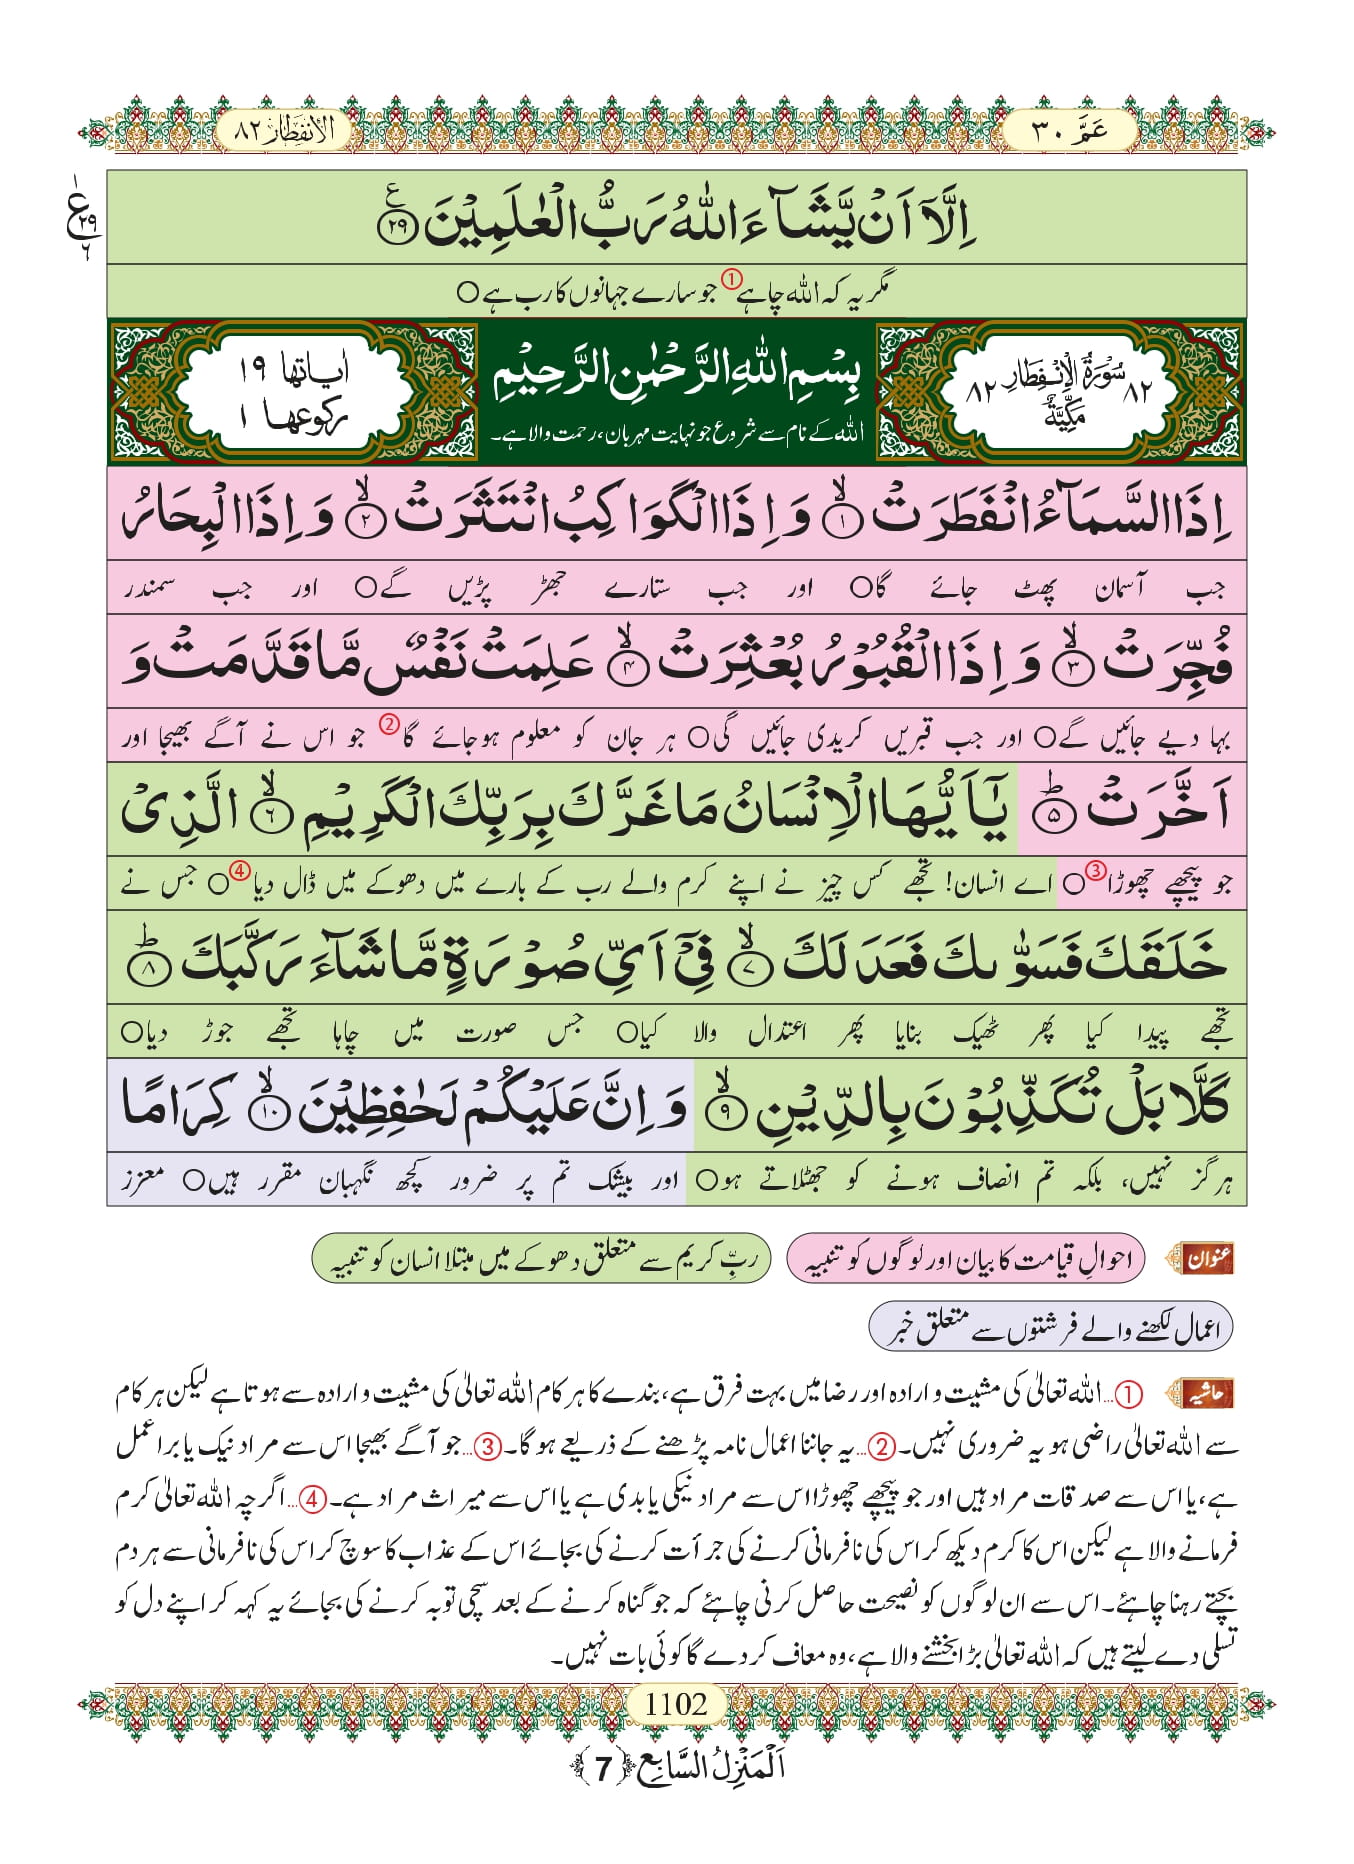 عَمَّ ۳۰
الانفطار ۸۲
اِلَّاۤ اَنْ یَّشَآءَ اللّٰهُ رَبُّ الْعٰلَمِیْنَ ﴿۲۹﴾ ع
ع ۱ ۲۹ ۶
مگر یہ کہ اللہ چاہے ① جو سارے جہانوں کا رب ہے ○
۸۲ سُوْرَةُ الْاِنْفِطَارِ ۸۲
مَكِّیَّةٌ
بِسْمِ اللّٰهِ الرَّحْمٰنِ الرَّحِیْمِ
اللہ کے نام سے شروع جو نہایت مہربان، رحمت والا ہے۔
اٰیاتها ۱۹
رکوعها ۱
اِذَا السَّمَآءُ انْفَطَرَتْ ﴿۱﴾ۙ وَ اِذَا الْكَوَاكِبُ انْتَثَرَتْ ﴿۲﴾ۙ وَ اِذَا الْبِحَارُ
جب آسمان پھٹ جائے گا ○ اور جب ستارے جھڑ پڑیں گے ○ اور جب سمندر
فُجِّرَتْ ﴿۳﴾ۙ وَ اِذَا الْقُبُوْرُ بُعْثِرَتْ ﴿۴﴾ۙ عَلِمَتْ نَفْسٌ مَّا قَدَّمَتْ وَ
بہا دیے جائیں گے ○ اور جب قبریں کریدی جائیں گی ○ ہر جان کو معلوم ہوجائے گا ② جو اس نے آگے بھیجا اور
اَخَّرَتْ ﴿۵﴾ؕ یٰۤاَیُّهَا الْاِنْسَانُ مَا غَرَّكَ بِرَبِّكَ الْكَرِیْمِ ﴿۶﴾ۙ الَّذِیْ
جو پیچھے چھوڑا ③ ○ اے انسان! تجھے کس چیز نے اپنے کرم والے رب کے بارے میں دھوکے میں ڈال دیا ④ ○ جس نے
خَلَقَكَ فَسَوّٰىكَ فَعَدَلَكَ ﴿۷﴾ۙ فِیْۤ اَیِّ صُوْرَةٍ مَّا شَآءَ رَكَّبَكَ ﴿۸﴾ؕ
تجھے پیدا کیا پھر ٹھیک بنایا پھر اعتدال والا کیا ○ جس صورت میں چاہا تجھے جوڑ دیا ○
كَلَّا بَلْ تُكَذِّبُوْنَ بِالدِّیْنِ ﴿۹﴾ۙ وَ اِنَّ عَلَیْكُمْ لَحٰفِظِیْنَ ﴿۱۰﴾ۙ كِرَامًا
ہرگز نہیں، بلکہ تم انصاف ہونے کو جھٹلاتے ہو ○ اور بیشک تم پر ضرور کچھ نگہبان مقرر ہیں ○ معزز
عنوان احوالِ قیامت کا بیان اور لوگوں کو تنبیہ ربِّ کریم سے متعلق دھوکے میں مبتلا انسان کو تنبیہ
اعمال لکھنے والے فرشتوں سے متعلق خبر
حاشیہ ①...اللہ تعالیٰ کی مشیت و ارادہ اور رضا میں بہت فرق ہے، بندے کا ہر کام اللہ تعالیٰ کی مشیت و ارادہ سے ہوتا ہے لیکن ہر کام
سے اللہ تعالیٰ راضی ہو یہ ضروری نہیں۔ ②...یہ جاننا اعمال نامہ پڑھنے کے ذریعے ہو گا۔ ③...جو آگے بھیجا اس سے مراد نیک یا برا عمل
ہے، یا اس سے صدقات مراد ہیں اور جو پیچھے چھوڑا اس سے مراد نیکی یا بدی ہے یا اس سے میراث مراد ہے۔ ④...اگرچہ اللہ تعالیٰ کرم
فرمانے والا ہے لیکن اس کا کرم دیکھ کر اس کی نافرمانی کرنے کی جرأت کرنے کی بجائے اس کے عذاب کا سوچ کر اس کی نافرمانی سے ہر دم
بچتے رہنا چاہئے۔ اس سے ان لوگوں کو نصیحت حاصل کرنی چاہئے کہ جو گناہ کرنے کے بعد سچی توبہ کرنے کی بجائے یہ کہہ کر اپنے دل کو
تسلی دے لیتے ہیں کہ اللہ تعالیٰ بڑا بخشنے والا ہے، وہ معاف کر دے گا کوئی بات نہیں۔
1102
اَلْمَنْزِلُ السَّابِع ﴿7﴾